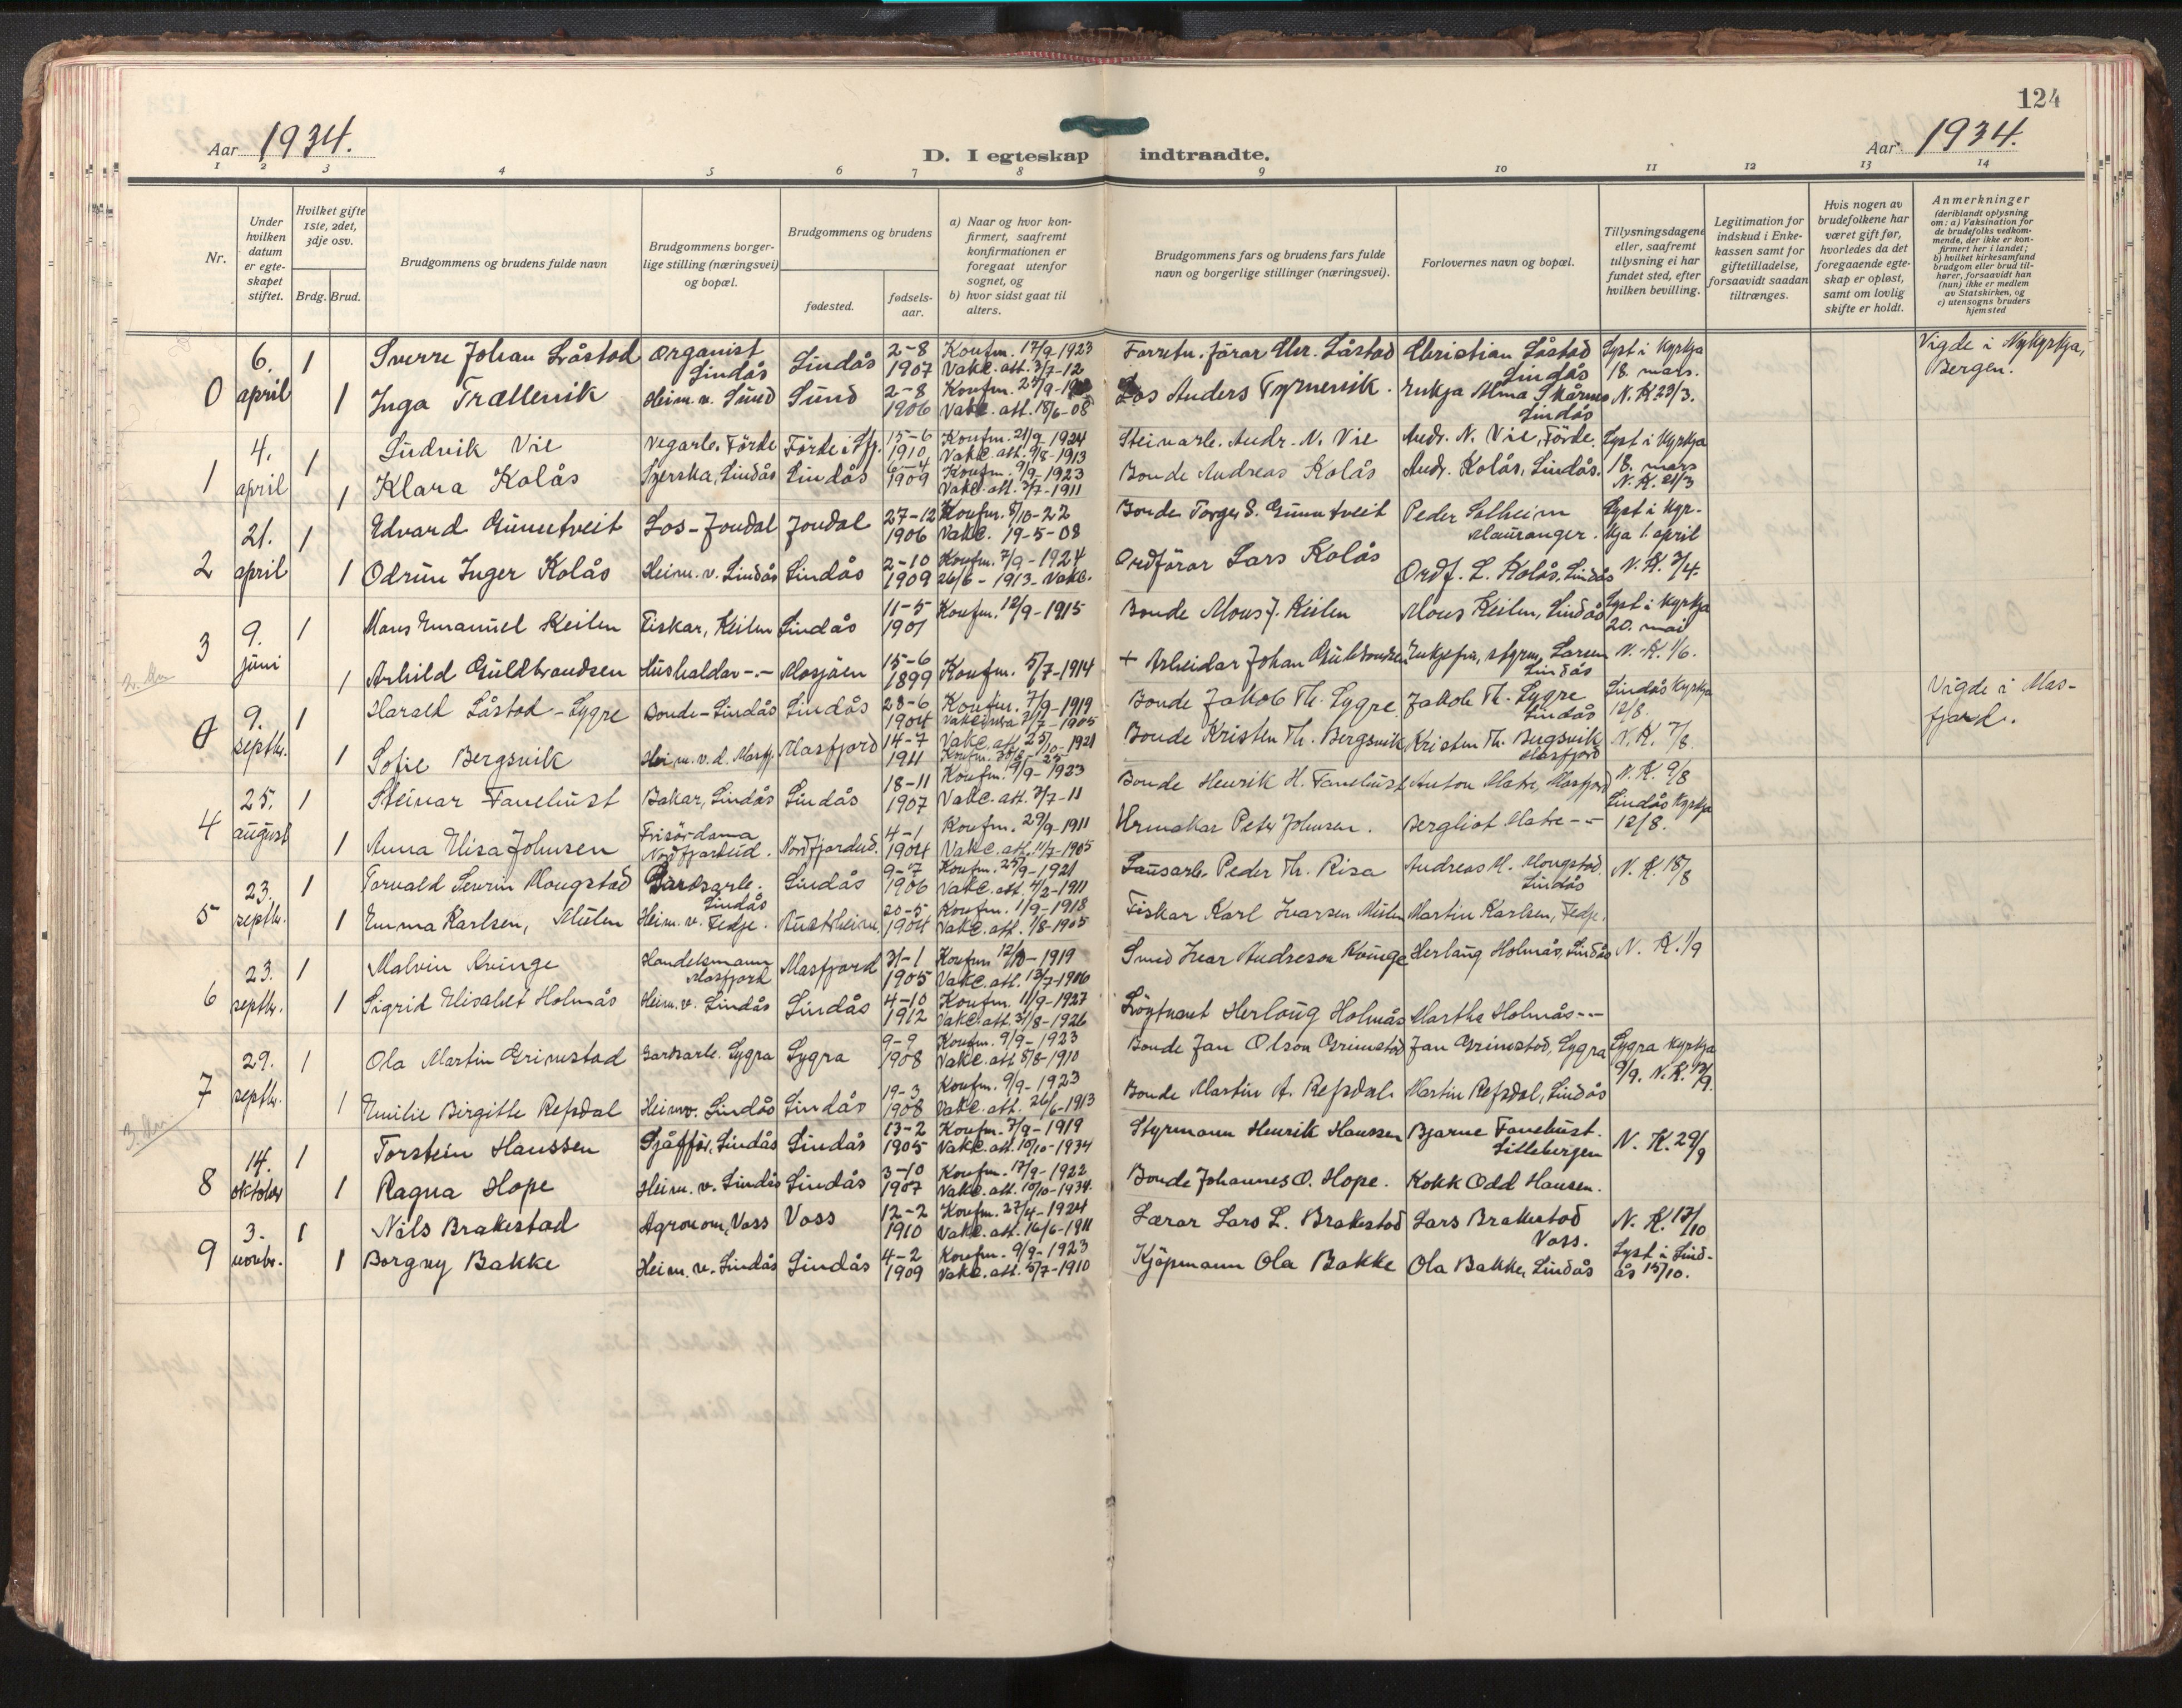 124
Aar 1934.
D. I egteskap indtraadte.
Aar 1934.
1 2 3 4 5 6 7 8 9 10 11 12 13 14
Nr.
Under hvilken datum er egte-skapet stiftet.
Hvilket gifte 1ste, 2det, 3dje osv.
Brdg. Brud.
Brudgommens og brudens fulde navn
Brudgommens borger-lige stilling (næringsvei) og bopæl.
Brudgommens og brudens
fødested.
fødsels-aar.
a) Naar og hvor kon-firmert, saafremt konfirmationen er foregaat utenfor sognet, og
b) hvor sidst gaat til alters.
Brudgommens fars og brudens fars fulde navn og borgerlige stillinger (næringsvei).
Forlovernes navn og bopæl.
Tillysningsdagene eller, saafremt tillysning ei har fundet sted, efter hvilken bevilling.
Legitimation for indskud i Enke-kassen samt for giftetilladelse, forsaavidt saadan tiltrænges.
Hvis nogen av brudefolkene har været gift før, hvorledes da det foregaaende egte-skap er opløst, samt om lovlig skifte er holdt.
Anmerkninger
(deriblandt oplysning om: a) Vaksination for de brudefolks vedkom-mende, der ikke er kon-firmert her i landet;
b) hvilket kirkesamfund brudgom eller brud til-hører, forsaavidt han (hun) ikke er medlem av Statskirken, og
c) utensogns bruders hjemsted
0 6. april 1 Sverre Johan Låstad Organist Lindås Lindås 2-8 1907 Konfm. 17/9-1923 Vakc. att. 3/7-12 Forretn. förar Chr. Låstad Christian Låstad Lindås Lyst i kyrkja 18. mars. Vigde i Nykyrkja, Bergen.
1 Inga Trællevik Heim. v. Sund Sund 2-8 1906 Vakc. att. 18/6-08 Los Anders Enkja Alma Lindås N. K 23/3.
1 4. april 1 Ludvik Vie Vegarb. Förde Förde i Sfj. 15-6 1910 Konfm. 21/9-1924 Vakc. att. 9/8-1913 Steinarb. Andr. N. Vie Andr. N. Vie, Förde. Lyst i kyrkja
1 Klara Kolås Syerska, Lindås Lindås 6-4 1909 Konfm. 9/9-1923 Vakc. att. 3/7-1911 Bonde Andreas Kolås Andr. Kolås, Lindås. 18. mars N. K. 21/3
2 21. april 1 Edvard Gunntveit Los-Jondal Jondal 27-12 1906 Konfm. 8/10-22 Vakc. 19-5-08 Bonde Torger S. Gunntveit Peder Solheim Mauranger. Lyst i kyr-kja 1. april
1 Odrun Inger Kolås Heim. v. Lindås Lindås 2-10 1909 Konfm. 7/9-1924 26/6-1913-Vakc. Ordförar Lars Kolås Ordf. L. Kolås. Lindås N. K. 3/4.
3 9. juni 1 Mons Emanuel Keilen Fiskar, Keilen Lindås 11-5 1901 Konfm. 12/9-1915 Bonde Mons J. Keilen Mons Keilen, Lindås Lyst i kyrkja 20. mai
1 Arhild Guldbrandsen Hushaldar -.- Mosjöen 15-6 1899 Konfm. 5/7-1914 + Arbeidar Johan Guldbrandsen Larsen Lindås N. K. 1/6.
0 9. septbr. 1 Harald Låstad-Lygre Bonde-Lindås Lindås 28-6 1904 Konfm. 7/9-1919 Bonde Jakob Th. Lygre Jakob Th. Lygre Lindås Lindås kyrkja 12/8 Vigde i Mas-fjord.
1 Sofie Bergsvik Heim. v. d. Masfj. Masfjord 14-7 1911 Vakc. att. 25/10-1921 Bonde Kristen Th. Bergsvik Kristen Th. Bergsvik Masfjord N. K. 7/8
4 25. august 1 Steinar Fanebust Bakar, Lindås Lindås 18-11 1907 Konfm. 9/9-1923 Vakc. att. 3/7-11 Bonde Henrik H. Fanebust Anton Matre, Masfjord N. K. 9/8
1 Anna Elisa Johnsen Frisördama Nordfjordeid. Nordfjordeid. 4-1 1904 Konfm. 29/9-1911 Vakc. att. 11/7-1905 Urmakar Peter Johnsen. Bergliot Matre -- Lindås kyrkja 12/8.
5 23. septbr. 1 Torvald Severin Mongstad Gardsarb. Lindås Lindås 9-7 1906 Konfm. 25/9-1921 Vakc. att. 4/2-1911 Lausarb. Peder Th. Risa Andreas M. Mongstad. Lindås N. K 18/8
1 Emma Karlsen, Mulen Heim. v. Fedje. Austrheim 20-5 1904 Konfm. 1/9-1918 Vakc. att. 1/8-1905 Fiskar Karl Ivarsen Mulen Martin Karlsen, Fedje.
6 23. septbr. 1 Malvin Kvinge Handelsmann Masfjord Masfjord 31-1 1905 Konfm. 12/10-1919 Vakc. att. 13/7-1906 Smed Ivar Andreson Kvinge Herlaug Holmås, Lindås N. K. 1/9
1 Sigrid Elisabet Holmås Heim. v. Lindås Lindås 4-10 1912 Konfm. 11/9-1927 Vakc. att. 31/8-1926 Löytnant Herlaug Holmås Martha Holmås --
7 29. septbr. 1 Ola Martin Grimstad Gardsarb. Lygra Lygra 9-9 1908 Konfm. 9/9-1923 Vakc. att 8/8-1910 Bonde Jan Olson Grimstad Jan Grimstad, Lygra Lygra kyrkja 9/9. N. K. 12/9.
1 Emilie Birgitte Refsdal Heimv. Lindås Lindås 19-3 1908 Konfm. 9/9-1923 Vakc. att. 26/6-1913 Bonde Martin A. Refsdal. Martin Refsdal, Lindås
8 14. oktober 1 Torstein Hanssen Sjåffør, Lindås Lindås 13-2 1905 Konfm. 7/9-1919 Vakc. att. 10/10-1934 Styrmann Henrik Hanssen Bjarne Fanebust. Lillebergen N. K. 29/9
1 Ragna Hope Heim. v. Lindås Lindås 3-10 1907 Konfm. 17/9-1922 Vakc. att. 10/10-1934. Bonde Johannes O. Hope. Kokk Odd Hansen.
9 3. novbr. 1 Nils Brakestad Agronom, Voss Voss 12-2 1910 Konfm. 27/4-1924 Vakc. att. 16/6-1911 Lærar Lars L. Brakestad Lars Brakestad Voss. N. K. 17/10
1 Borgny Bakke Heim. v. Lindås Lindås 4-2 1909 Konfm. 9/9-1923 Vakc. att. 5/7-1910 Kjöpmann Ola Bakke Ola Bakke, Lindås Lyst i Lind-ås 15/10.